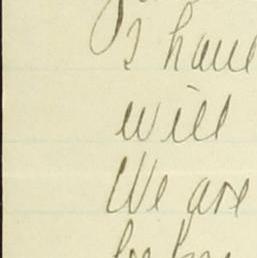 I have
will
We are